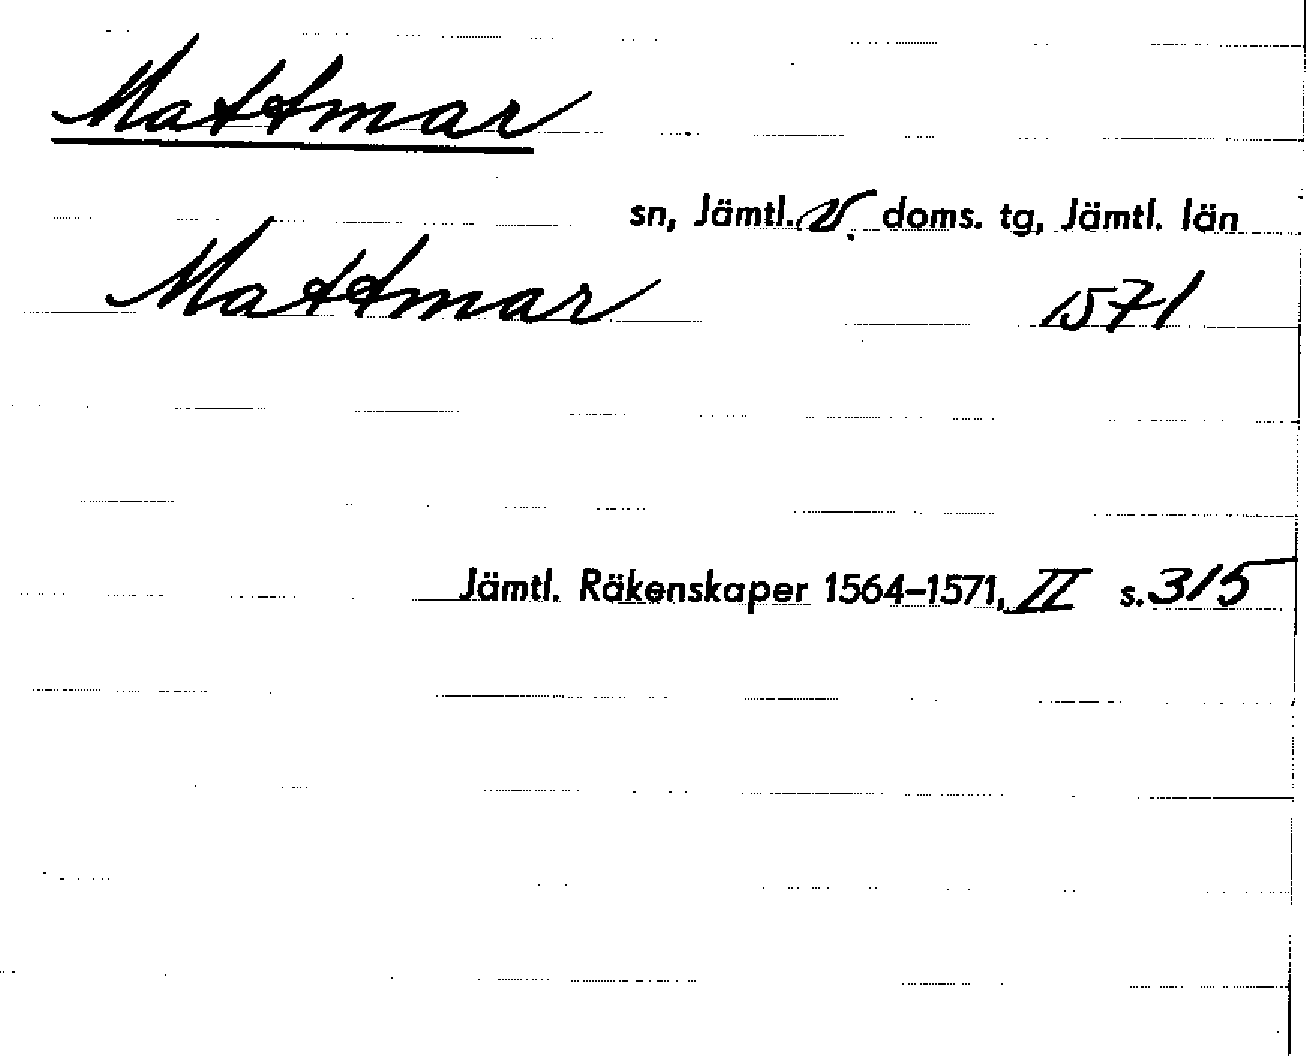 Mattmar
sn, Jämtl. V. doms. tg, Jämtl. län
Mattmar 1571
Jämtl. Räkenskaper 1564-1571, II s. 315